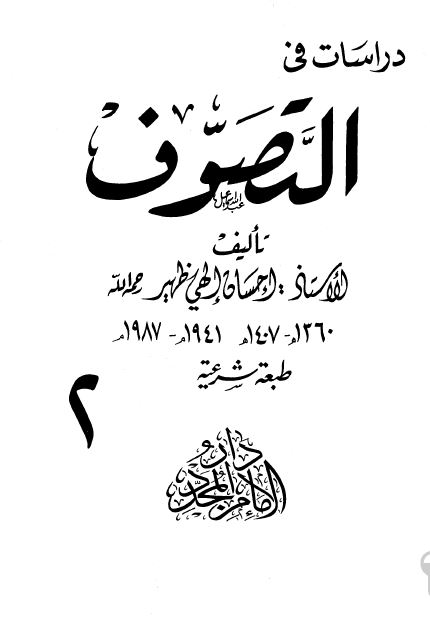 دراسات في
التصوف
تأليف
الأستاذ: إحسان إلهي ظهير رحمه الله
١٣٦٠هـ - ١٤٠٧هـ ١٩٤١م - ١٩٨٧م
طبعة شرعية
٢
دار
الإمام المجدد